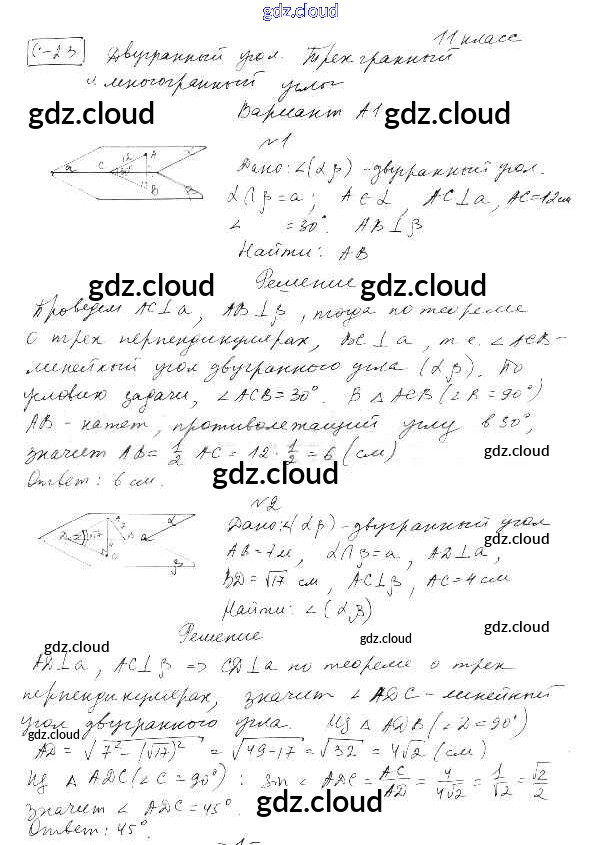 gdz.cloud
С-23 Двугранный угол. Трехгранный 11 класс
и многогранный углы
gdz.cloud gdz.cloud
Вариант А1
№1
Дано: ∠(αβ) - двугранный угол.
α∩β=a; A∈α, AC⊥a, AC=12см
∠ =30°. AB⊥β
Найти: AB
gdz.cloud gdz.cloud
Решение
Проведем AC⊥a, AB⊥β, тогда по теореме
о трех перпендикулярах, BC⊥a, т.е. ∠ACB-
линейный угол двугранного угла (αβ). По
условию задачи, ∠ACB=30°. В △ACB(∠B=90°)
AB - катет, противолежащий углу в 30°,
значит AB= 1/2 AC = 12·1/2 = 6 (см)
gdz.cloud
Ответ: 6 см.
gdz.cloud
№2
gdz.cloud
Дано: ∠(αβ)-двугранный угол
AB=7м, α∩β=a, AD⊥a,
gdz.cloud
BD=√17 см, AC⊥β, AC=4см
Найти: ∠(αβ)
gdz.cloud
Решение
gdz.cloud
gdz.cloud
AD⊥a, AC⊥β => CD⊥a по теореме о трех
перпендикулярах, значит ∠ADC-линейный
угол двугранного угла. Из △ADB(∠D=90°)
gdz.cloud
AD = √7²-(√17)² = √49-17 = √32 = 4√2 (см)
Из △ADC(∠C=90°): sin∠ADC = AC/AD = 4/4√2 = 1/√2 = √2/2
Значит ∠ADC=45°.
gdz.cloud gdz.cloud
Ответ: 45°.